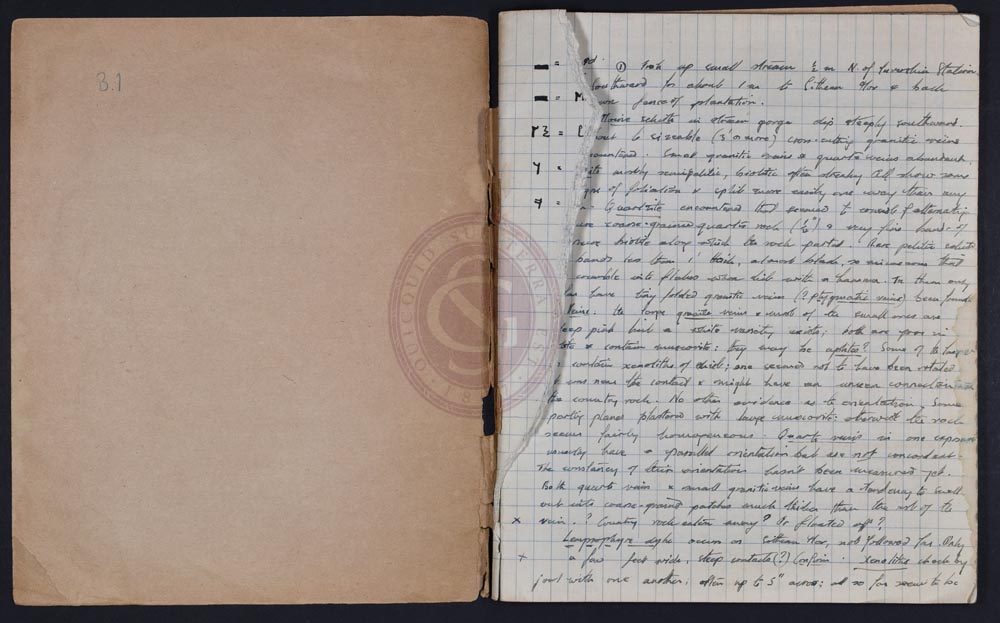 B.1
① Trek up small stream ½ m N. of Station
southward for about 1 m to & back
fence of plantation.
Moine schists in stream gorge dip steeply southward.
to sizeable (3' or more) cross-cutting granitic veins
encountered. Small granitic veins & quartz veins abundant.
mostly semipelitic, biotite often streaky. All show some
of foliation & split more easily one way than any
Quartzite encountered that seemed to consist of alternating
coarse-grained quartz rock (½") & very fine bands of
biotite along which the rock parted. Rare pelitic schist
bands less than 1' thick, almost black, so micaceous that
crumble into flakes when hit with a hammer. In them only
have tiny folded granitic veins (? ptygmatic veins) been found.
Veins: the large granite veins & most of the small ones are
deep pink but a white variety exists; both are poor in
& contain muscovite: they may be aplites? Some of the larger
contain xenoliths of schist; one seemed not to have been rotated
was near the contact & might have an unseen connection
the country rock. No other evidence as to orientation. Some
planes plastered with large muscovite: otherwise the rock
seems fairly homogeneous. Quartz veins in one exposure
usually have a parallel orientation but are not concordant.
The constancy of their orientation hasn't been measured yet.
Both quartz veins & small granitic veins have a tendency to swell
out into coarse-grained patches much thicker than the rest of the
x vein. ? Country rock eaten away? Or floated off?
Lamprophyre dyke occurs on , not followed far. Only
x a few feet wide, steep contacts (?) Contains xenoliths cheek by
jowl with one another; often up to 5" across; all so far seem to be
QUICQUID SUB TERRA EST